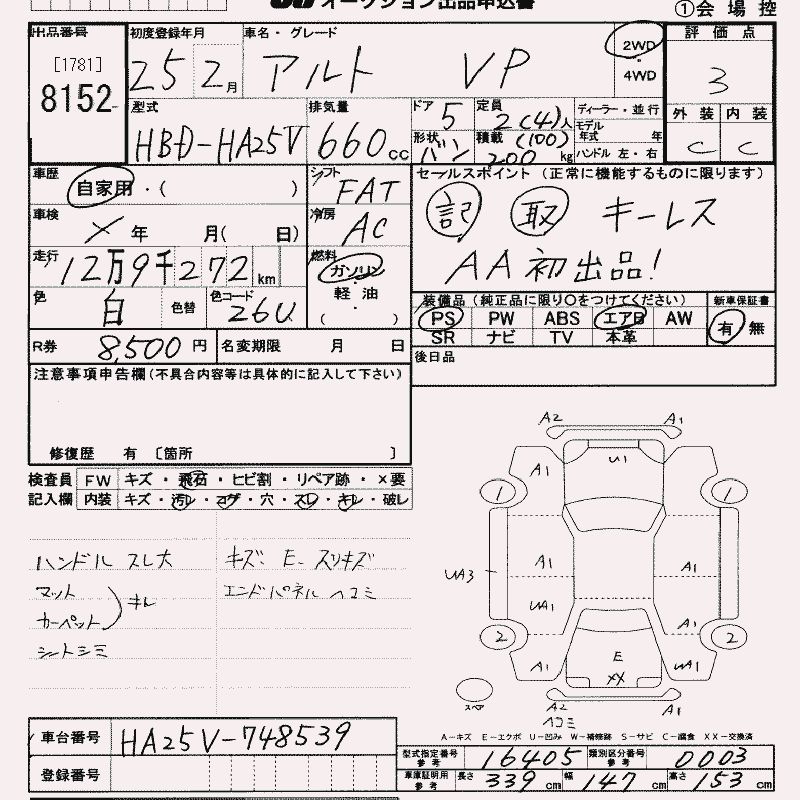 オークション出品申込書
①会場控
出品番号
[1781]
8152
初度登録年月
25 2月
車名・グレード
アルト VP
2WD
・
4WD
評価点
3
型式
HBD-HA25V
排気量
660cc
ドア 5
定員 2(4)人
ディーラー・並行
形状 バン
積載 (100) 200kg
モデル年式 年
ハンドル 左・右
外装 内装
C C
車歴
自家用・( )
シフト
FAT
セールスポイント (正常に機能するものに限ります)
記 取 キーレス
AA初出品!
車検
× 年 月( 日)
冷房
AC
走行
12万9千272km
燃料
ガソリン
・
軽油
( )
色
白
色替
色コード
26U
装備品 (純正品に限り〇をつけてください)
新車保証書
PS PW ABS エアB AW
有 無
SR ナビ TV 本革
R券 8,500円
名変期限 月 日
後日品
注意事項申告欄(不具合内容等は具体的に記入して下さい)
修復歴 有 〔箇所 〕
検査員 FW キズ・飛石・ヒビ割・リペア跡・×要
記入欄 内装 キズ・汚レ・コゲ・穴・スレ・キレ・破レ
ハンドル スレ大
マット
カーペット
キレ
シートシミ
キズ、E、スリキズ
エンドパネル ヘコミ
A2 A1
A1 U1
1 1
UA3 A1 A1
UA1
2 A1 2
A1 E UA1
XX
スペア
A2 A1
ヘコミ
A－キズ E－エクボ U－凹み W－補修跡 S－サビ C－腐食 XX－交換済
車台番号 HA25V-748539
登録番号
型式指定番号 参考 16405
類別区分番号 参考 0003
車庫証明用 参考 長さ 339cm 幅 147cm 高さ 153cm